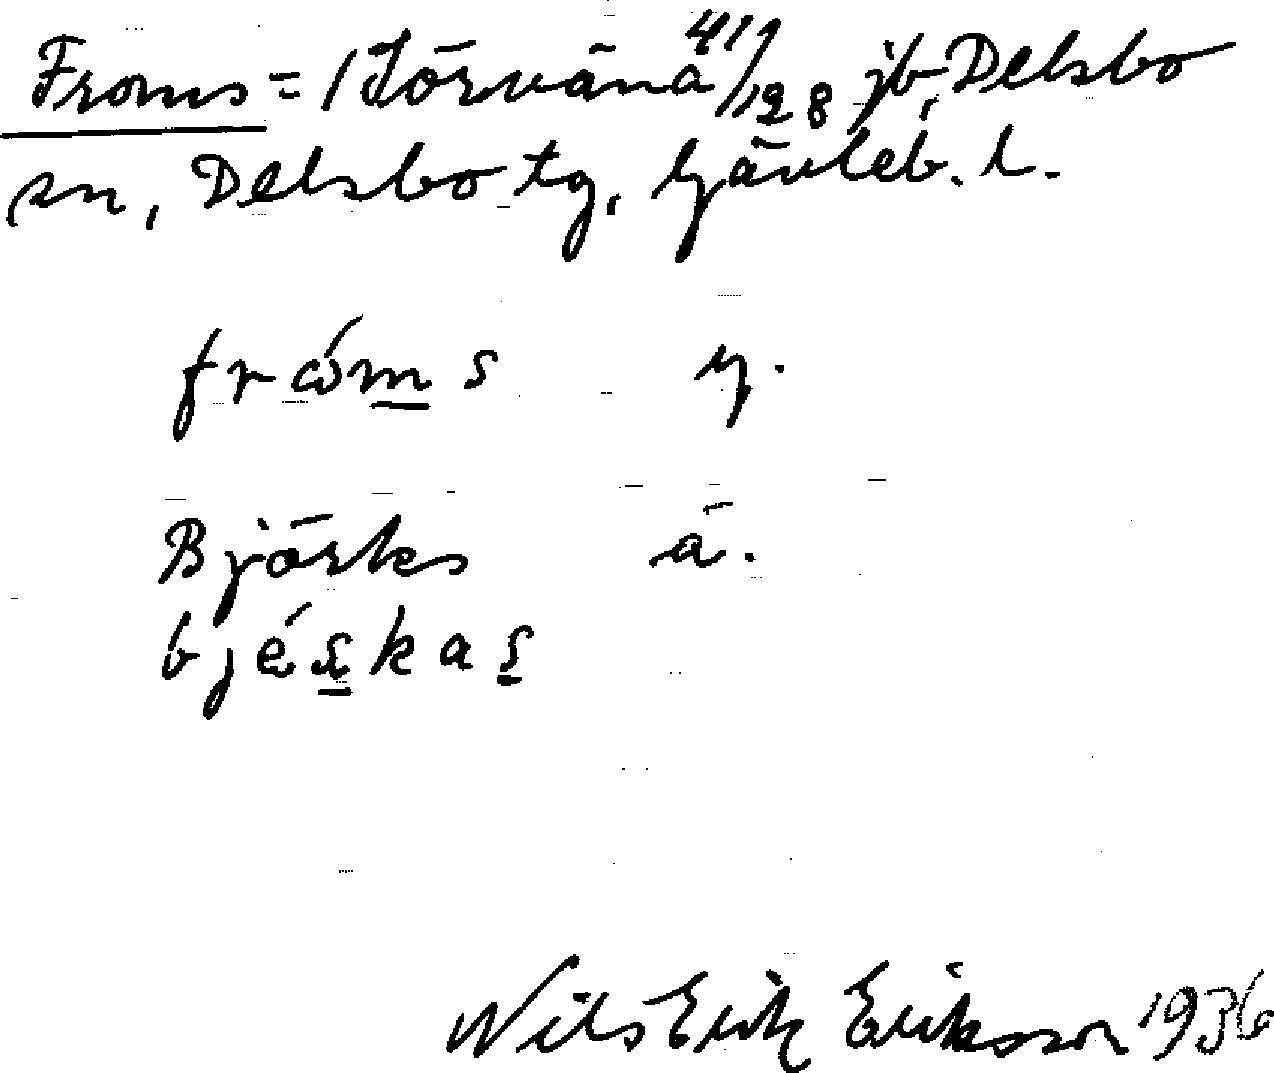 Froms = (Törvänä 4 11/128 jb, Delsbo
sn, Delsbo tg, Gävleb. l.
frώms g.
Björkes ä.
bjéskas
Nils Erik Eriksson 1936